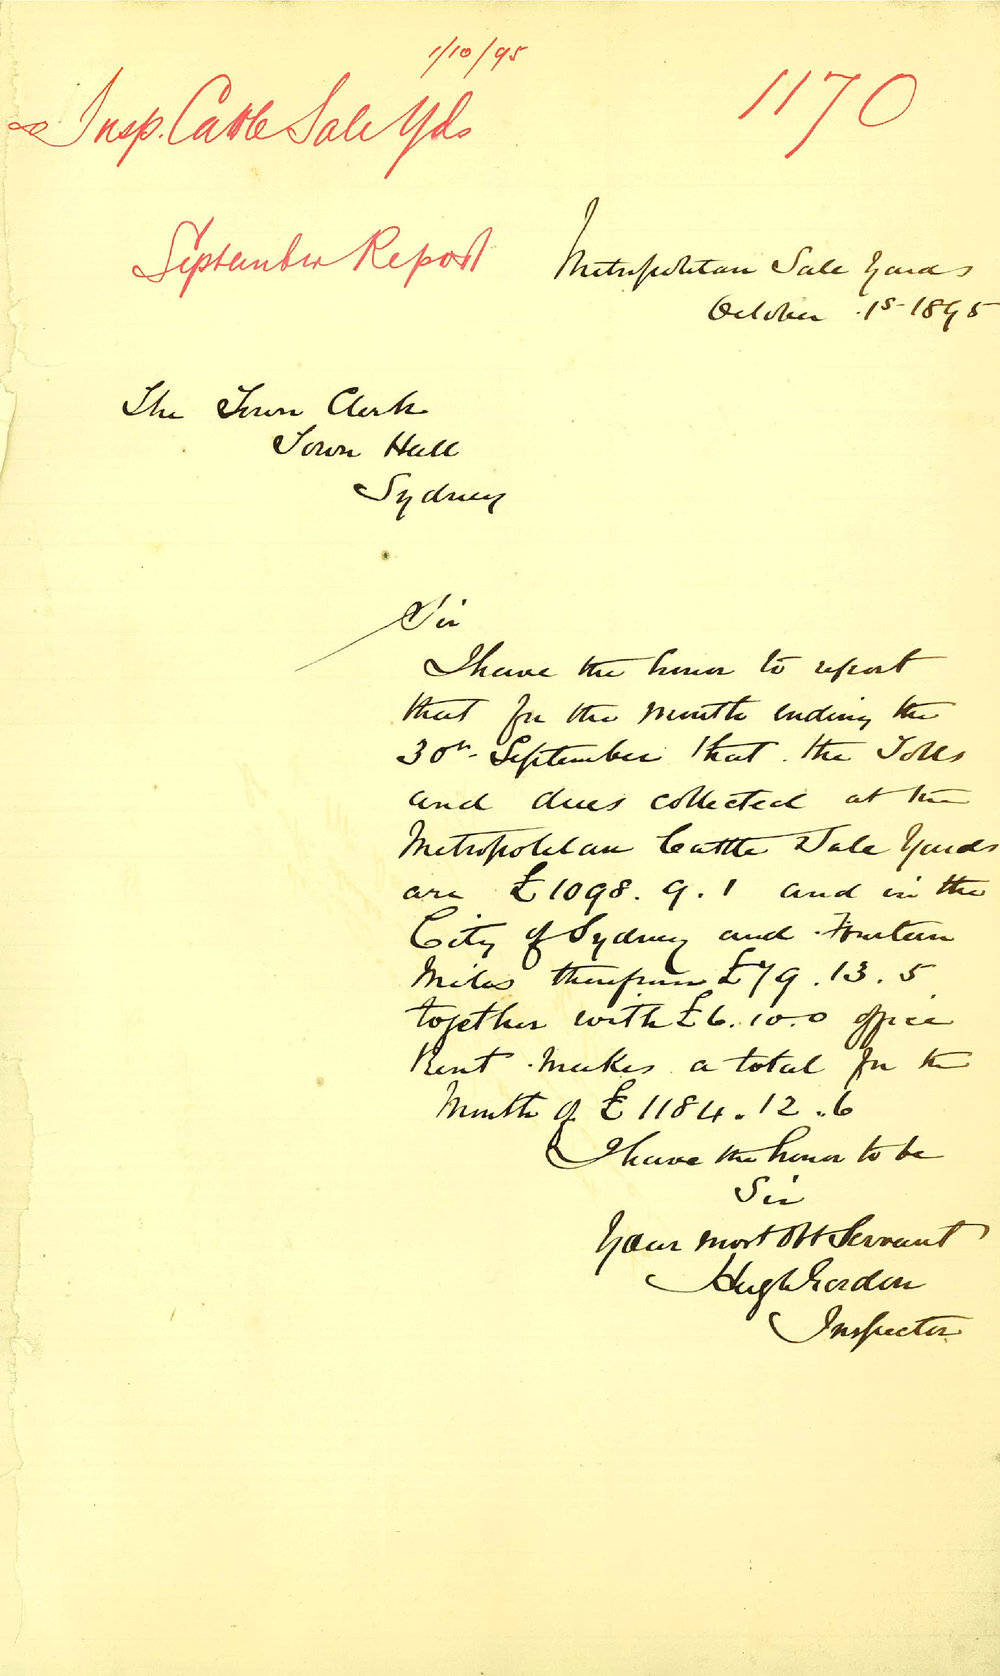 1/10/95
Insp. Cattle Sale Yds
1170
September Report
Metropolitan Sale Yards
October .1st 1895
The Town Clerk
Town Hall
Sydney
Sir
I have the honor to report
that for the Month ending the
30th September that the Tolls
and dues collected at the
Metropolitan Cattle Sale Yards
are £1098.9.1 and in the
City of Sydney and Fourteen
Miles therefrom £79.13.5
together with £6.10.0 office
Rent makes a total for the
Month of £1184.12.6
I have the honor to be
Sir
Your most Obt Servant
Hugh Gordon
Inspector